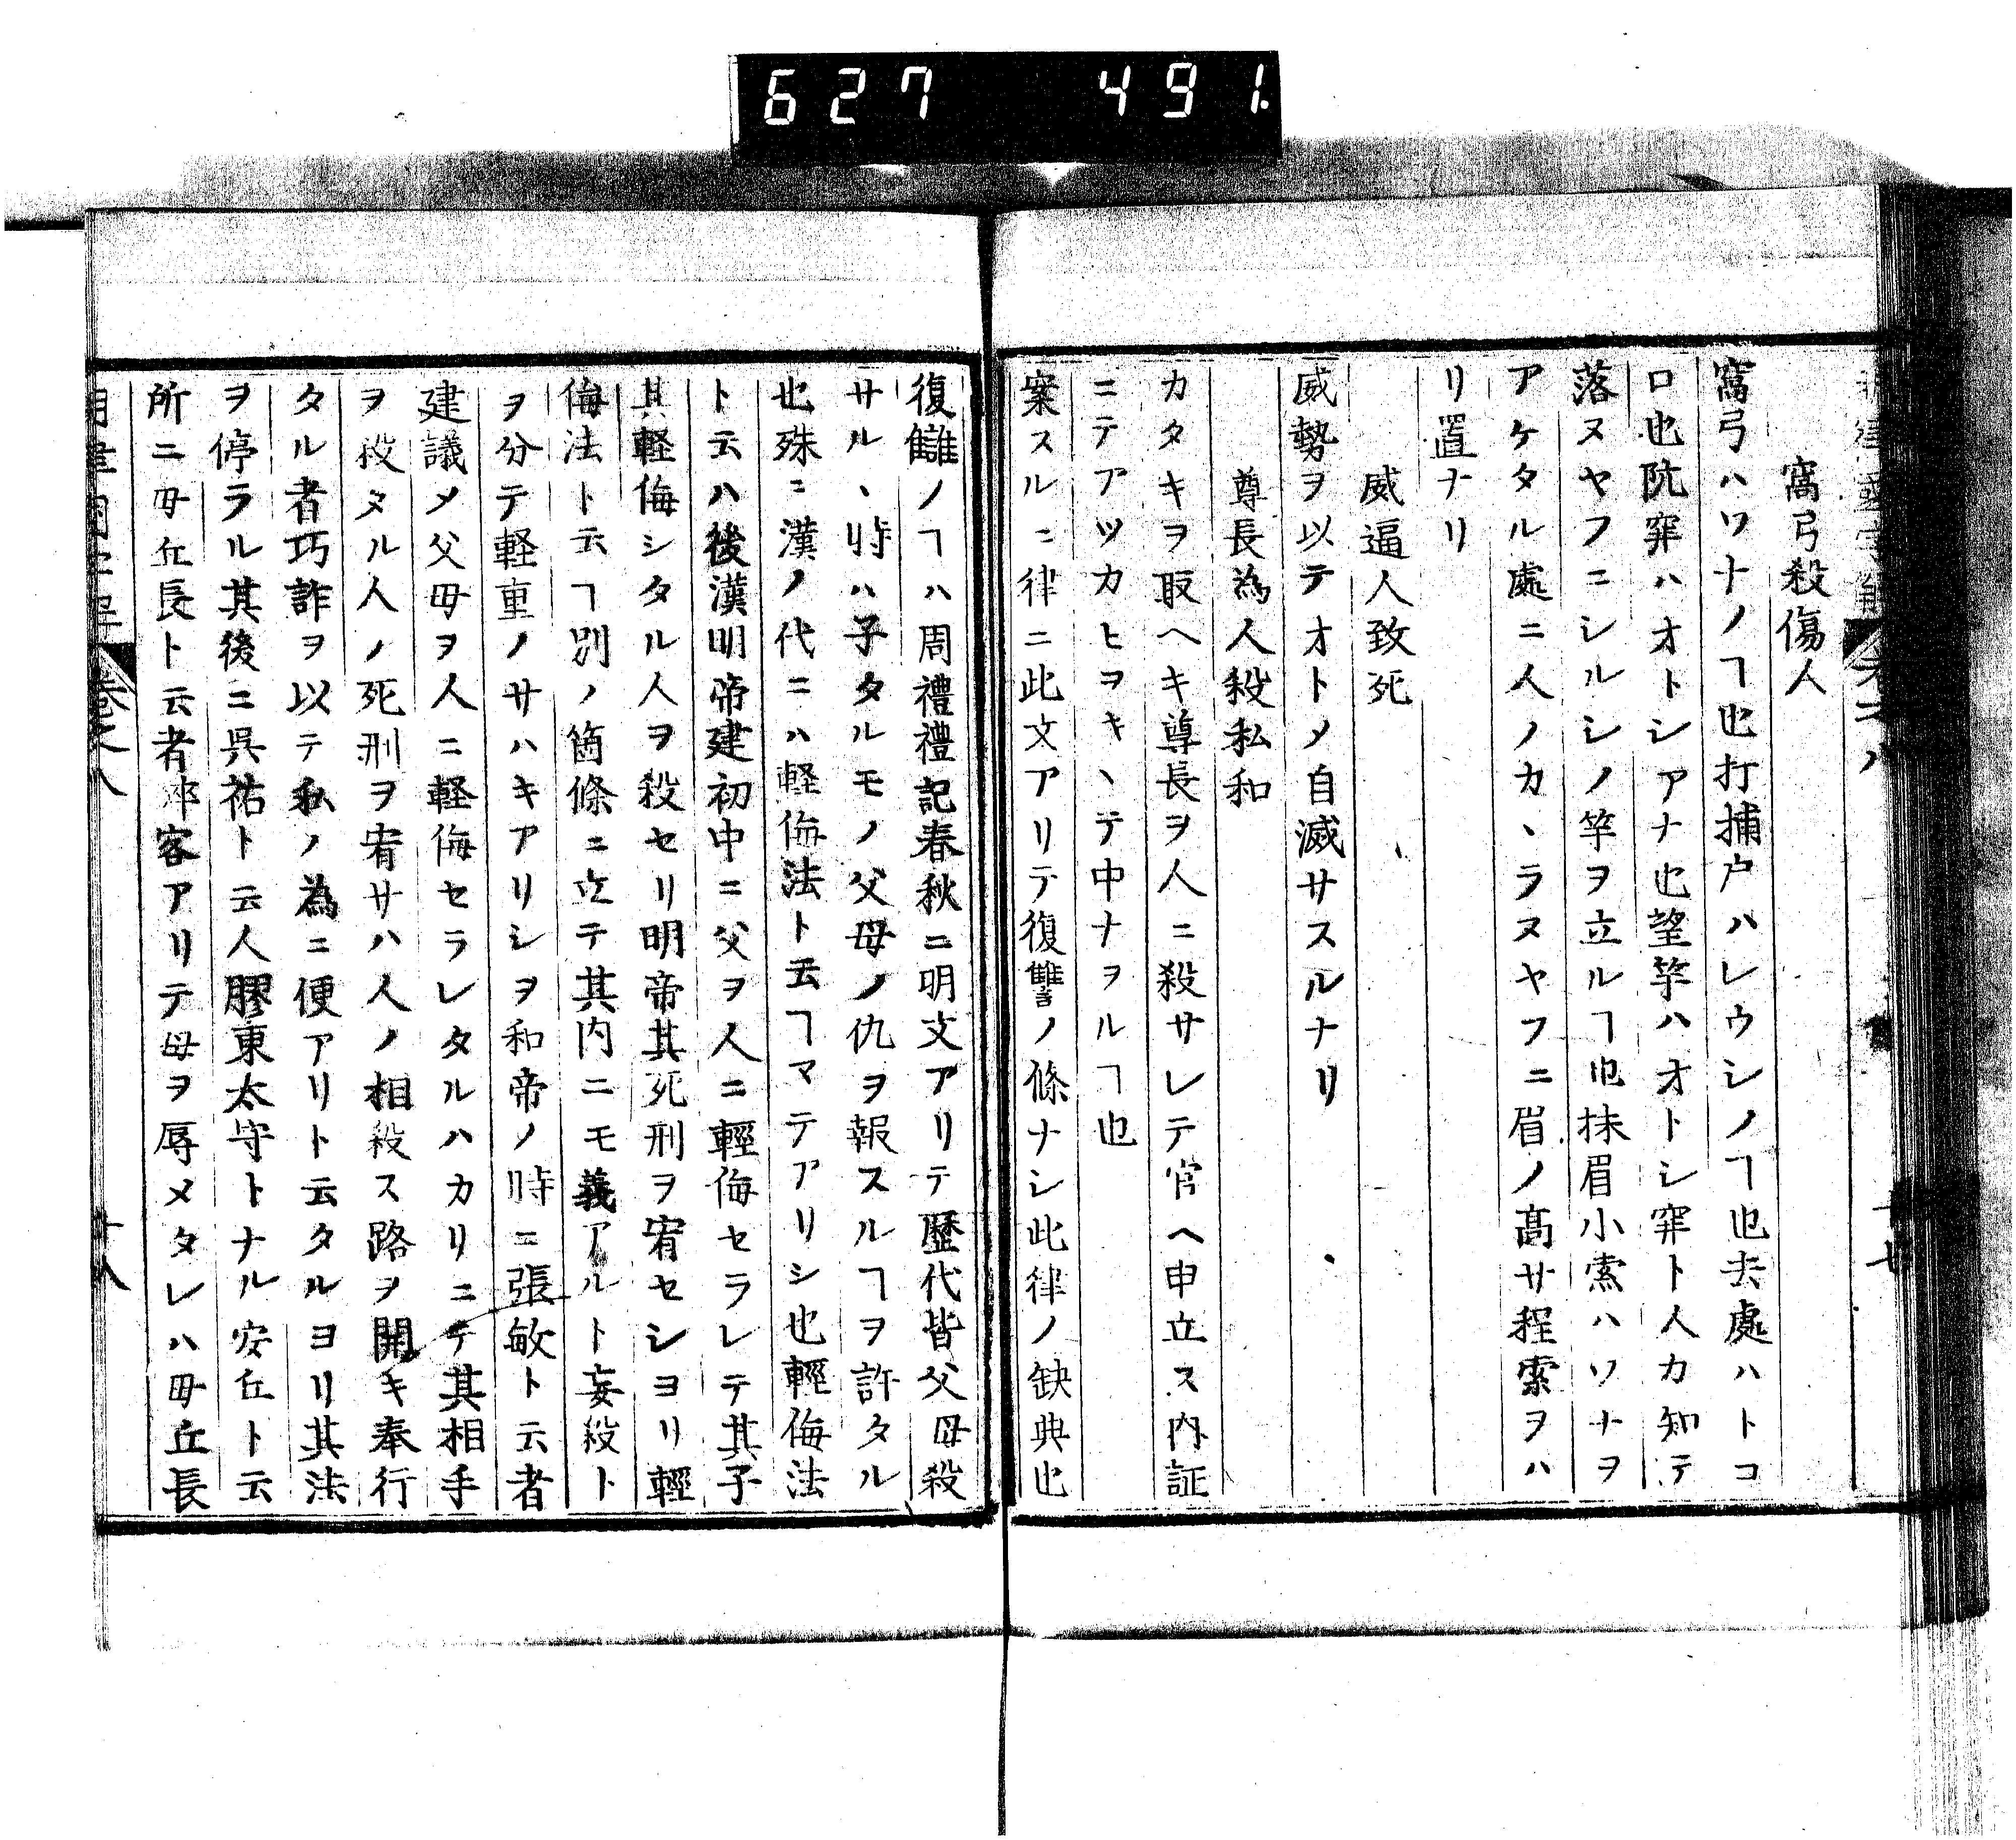 627 491.
窩弓殺傷人
窩弓ハワナノヿ也打捕戸ハレウシノヿ也去處ハトコ
ロ也阬穽ハオトシアナ也望竿ハオトシ穽ト人カ知テ
落ヌヤフニシルシノ竿ヲ立ルヿ也抹眉小索ハソナヲ
アケタル處ニ人ノカヽラヌヤフニ眉ノ髙サ程索ヲハ
リ置ナリ
威逼人致死
威勢ヲ以テオトメ自滅サスルナリ
尊長為人殺私和
カタキヲ取ヘキ尊長ヲ人ニ殺サレテ官ヘ申立ス内証
ニテアツカヒヲキヽテ中ナヲルヿ也
案スルニ律ニ此文アリテ復讐ノ條ナシ此律ノ缺典也
復讎ノヿハ周禮禮記春秋ニ明文アリテ歷代皆父母殺
サルヽ時ハ子タルモノ父母ノ仇ヲ報スルヿヲ許タル
也殊ニ漢ノ代ニハ軽侮法ト云ヿマテアリシ也輕侮法
ト云ハ後漢明帝建初中ニ父ヲ人ニ輕侮セラレテ其子
其軽侮シタル人ヲ殺セリ明帝其死刑ヲ宥セシヨリ輕
侮法ト云ヿ別ノ箇條ニ立テ其内ニモ義アルト妄殺ト
ヲ分テ軽重ノサハキアリシヲ和帝ノ時ニ張敏ト云者
建議メ父母ヲ人ニ軽侮セラレタルハカリニテ其相手
ヲ殺タル人ノ死刑ヲ宥サハ人ノ相殺ス路ヲ開キ奉行
タル者巧詐ヲ以テ私ノ為ニ便アリト云タルヨリ其法
ヲ停ラル其後ニ呉祐ト云人膠東太守トナル安丘ト云
所ニ毋丘長ト云者アリテ母ヲ辱メタレハ毋丘長
卷之八
十八